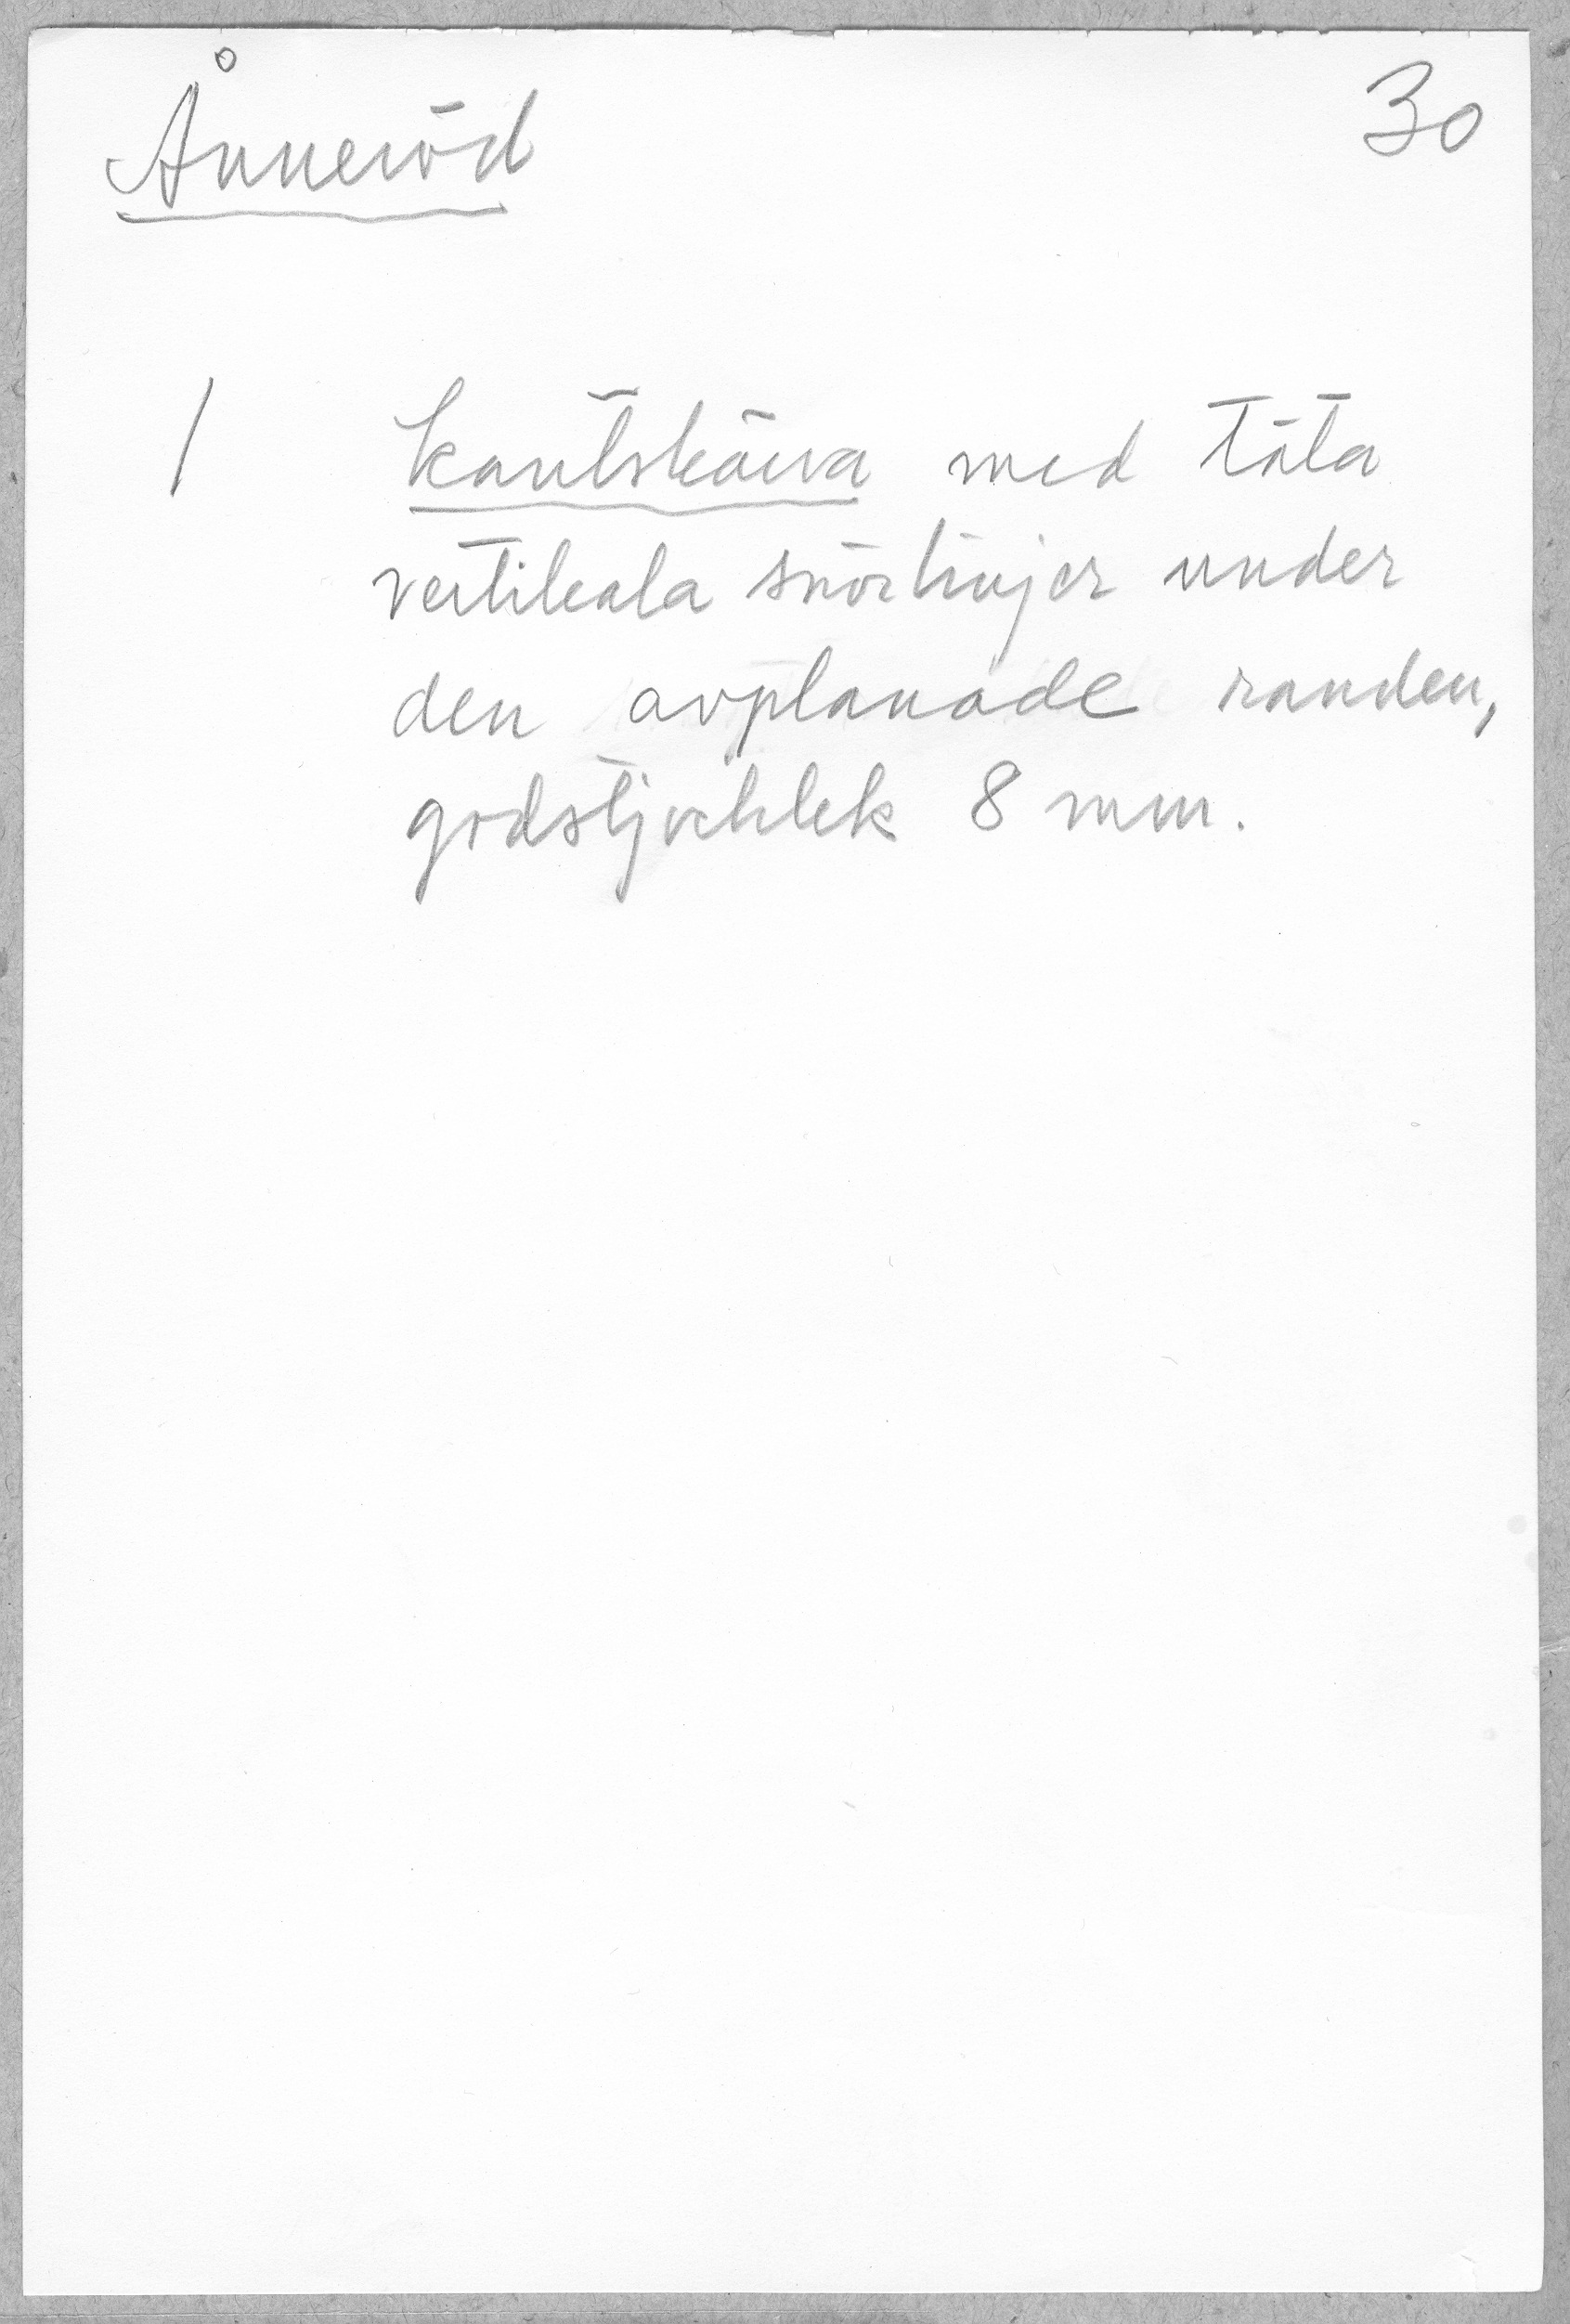 Ånneröd 30
1 kantskärva med täta
vertikala snörlinjer under
den avplanade randen,
godstjocklek 8 mm.